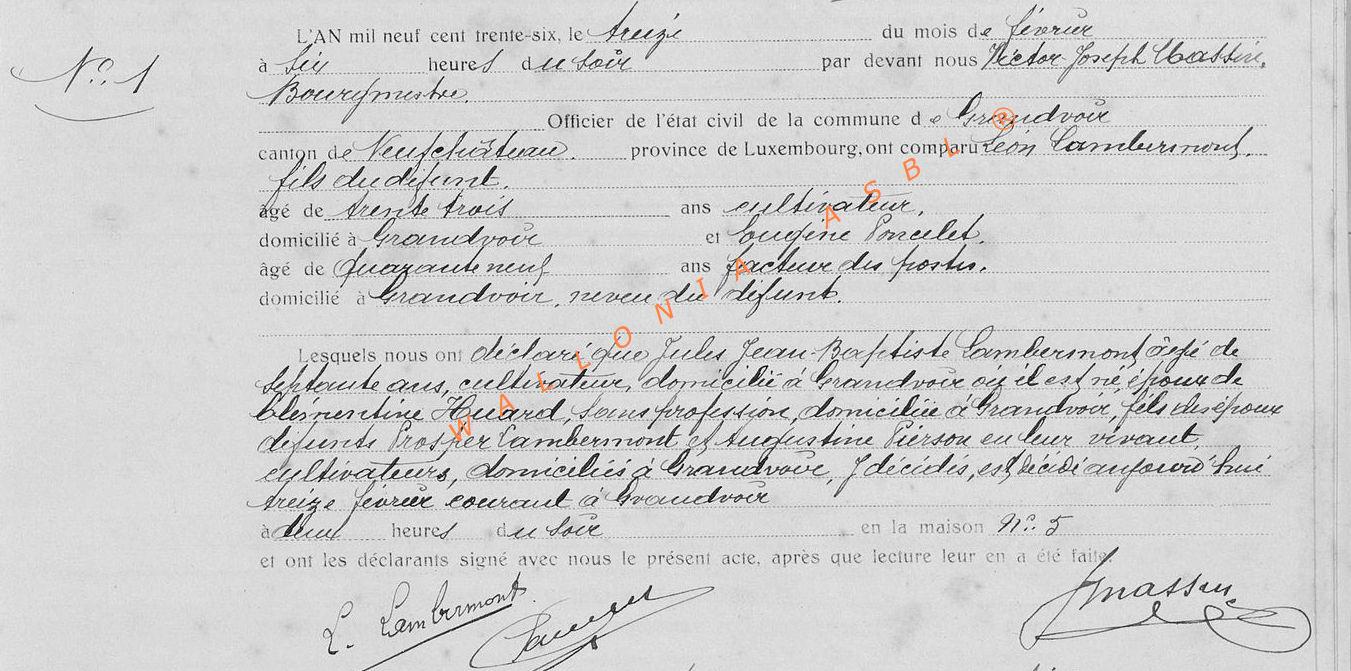 N° 1
L'AN mil neuf cent trente-six, le treize du mois de février
à six heures du soir par devant nous Victor Joseph Massin,
Bourgmestre.
Officier de l'état civil de la commune de Grandvoir
canton de Neufchâteau. province de Luxembourg, ont comparu Léon Lambermont,
fils du défunt.
âgé de trente trois ans cultivateur,
domicilié à Grandvoir et Eugène Poncelet.
âgé de quarante neuf ans facteur des postes.
domicilié à Grandvoir, neveu du défunt.
Lesquels nous ont déclaré que Jules Jean-Baptiste Lambermont, âgé de
septante ans, cultivateur, domicilié à Grandvoir où il est né, époux de
Clémentine Huard, sans profession, domiciliée à Grandvoir, fils des époux
défunts Prosper Lambermont et Augustine Pierson en leur vivant
cultivateurs, domiciliés à Grandvoir, y décédés, est décédé aujourd'hui
treize février courant à Grandvoir
à deux heures du soir en la maison N° 5
et ont les déclarants signé avec nous le présent acte, après que lecture leur en a été faite.
L. Lambermont
JMassin
WALLONIA ASBL ®